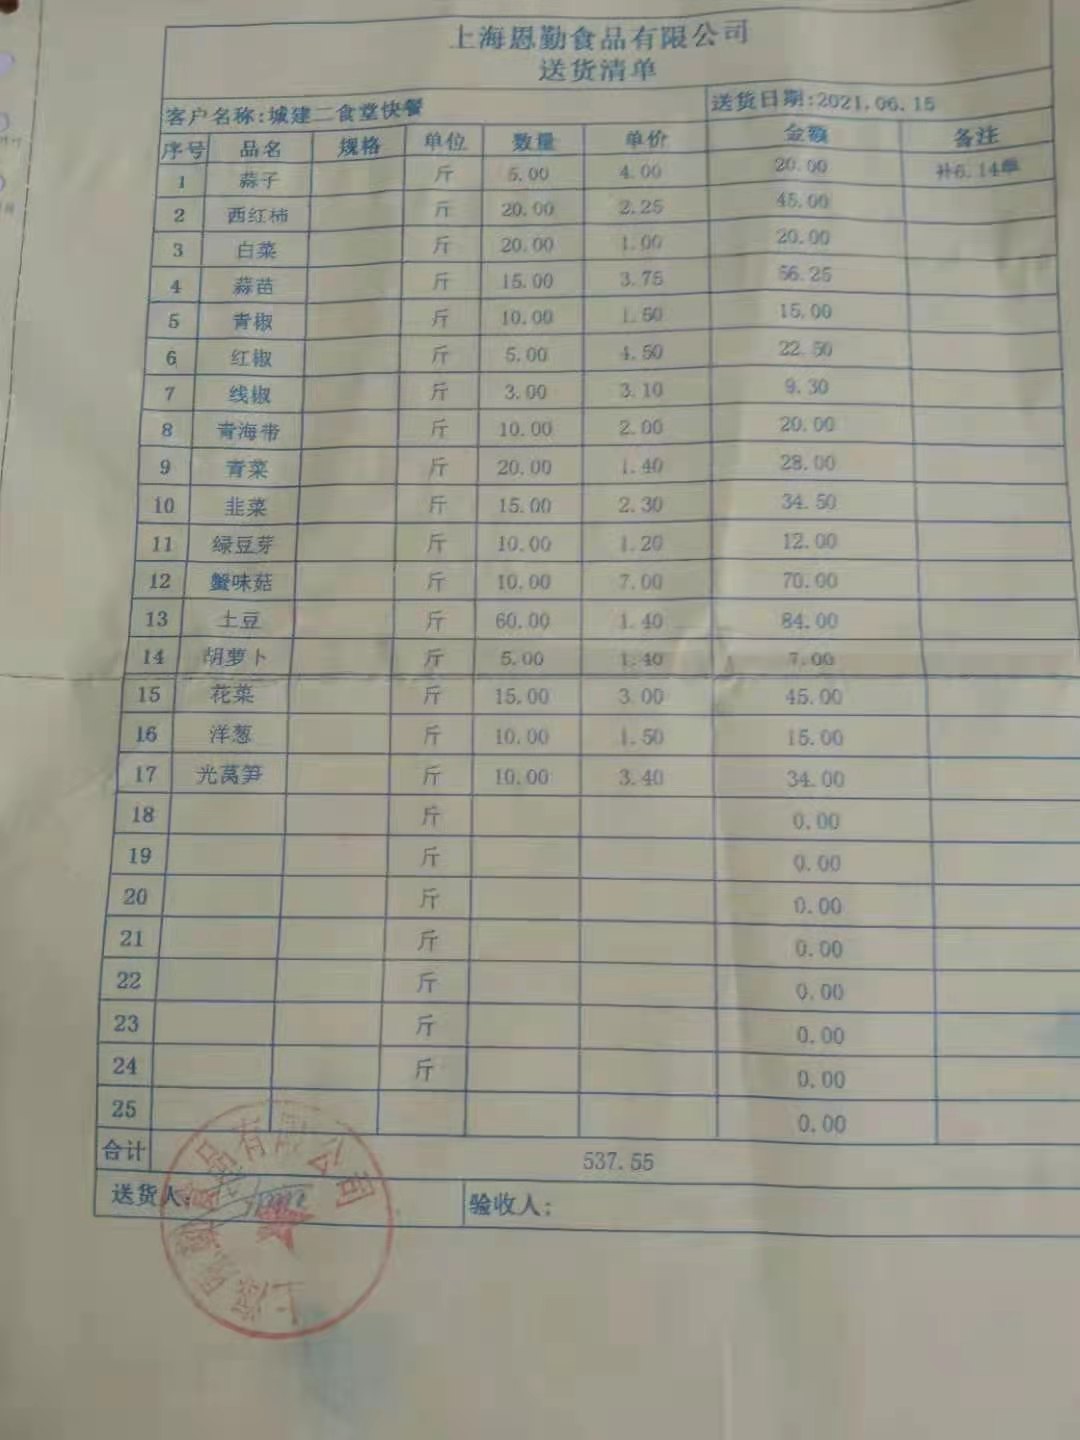 上海恩勤食品有限公司
送货清单
客户名称:城建二食堂快餐 送货日期:2021.06.15
序号 品名 规格 单位 数量 单价 金额 备注
1 蒜子 斤 5.00 4.00 20.00 补6.14单
2 西红柿 斤 20.00 2.25 45.00
3 白菜 斤 20.00 1.00 20.00
4 蒜苗 斤 15.00 3.75 56.25
5 青椒 斤 10.00 1.50 15.00
6 红椒 斤 5.00 4.50 22.50
7 线椒 斤 3.00 3.10 9.30
8 青海带 斤 10.00 2.00 20.00
9 青菜 斤 20.00 1.40 28.00
10 韭菜 斤 15.00 2.30 34.50
11 绿豆芽 斤 10.00 1.20 12.00
12 蟹味菇 斤 10.00 7.00 70.00
13 土豆 斤 60.00 1.40 84.00
14 胡萝卜 斤 5.00 1.40 7.00
15 花菜 斤 15.00 3.00 45.00
16 洋葱 斤 10.00 1.50 15.00
17 光莴笋 斤 10.00 3.40 34.00
18 斤 0.00
19 斤 0.00
20 斤 0.00
21 斤 0.00
22 斤 0.00
23 斤 0.00
24 斤 0.00
25 0.00
合计 537.55
送货人: 验收人:
上海恩勤食品有限公司